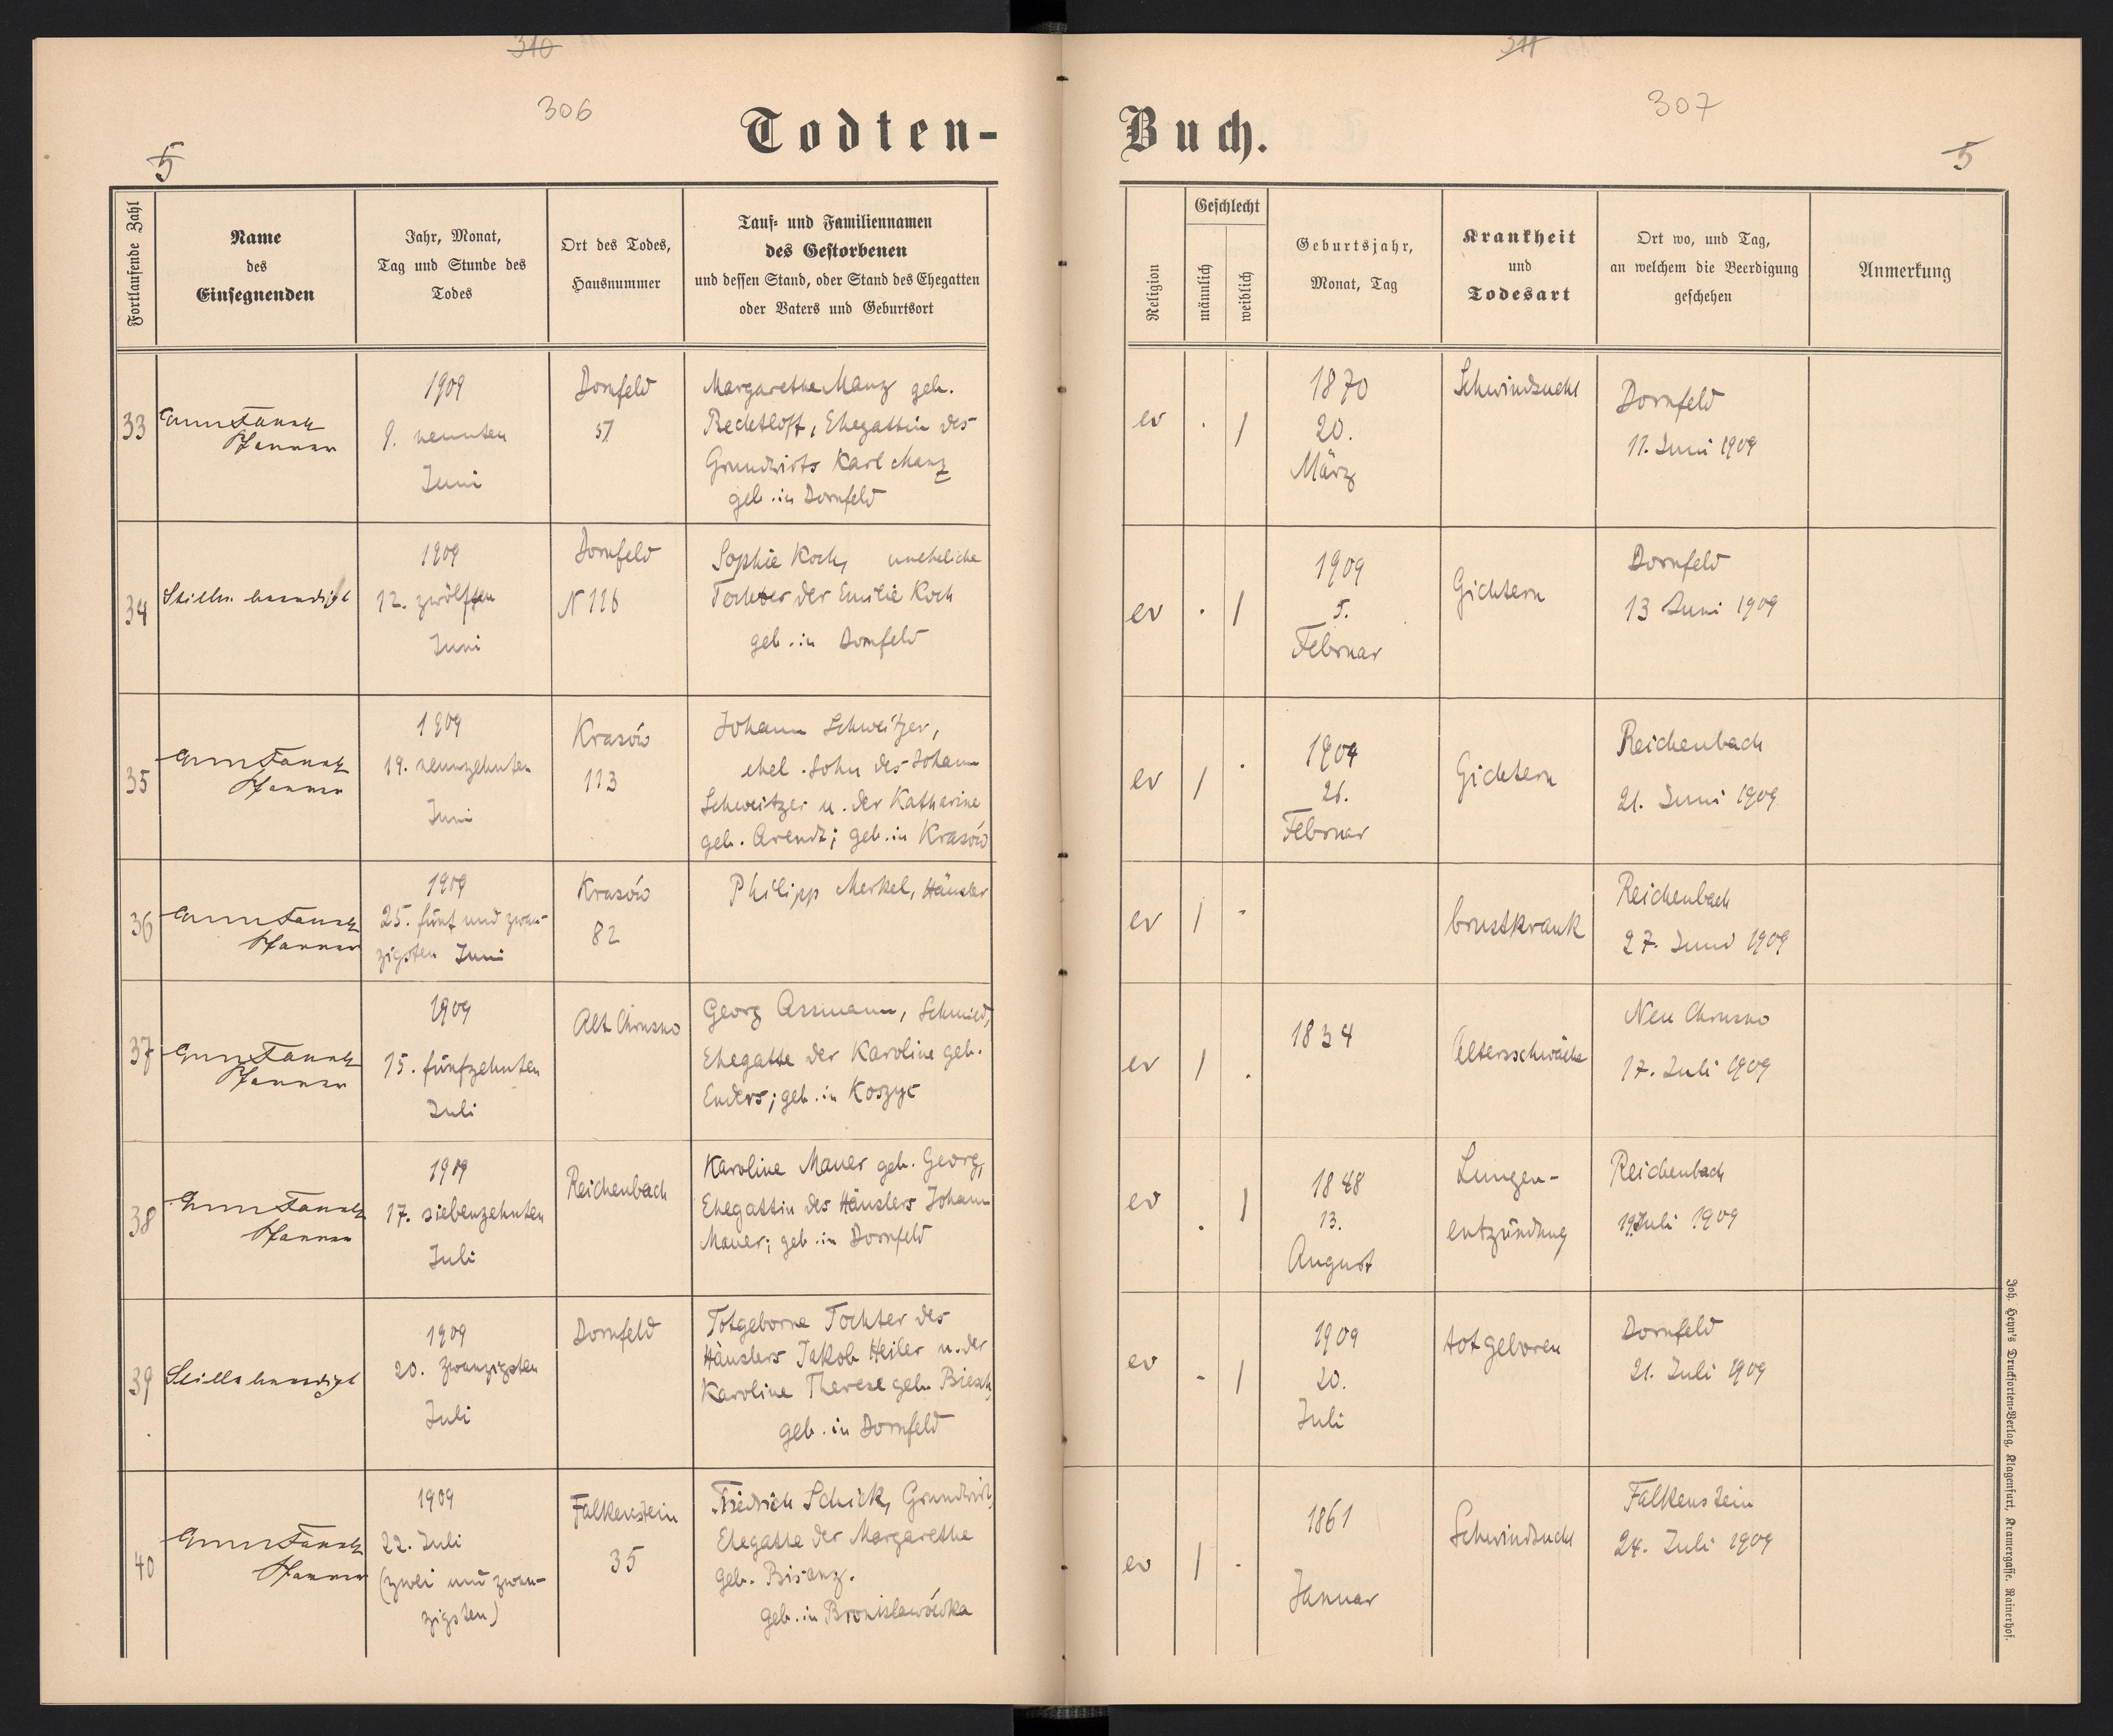 310
306
Todten-
5
Fortlaufende Zahl
Name
des
Einsegnenden
Jahr, Monat,
Tag und Stunde des
Todes
Ort des Todes,
Hausnummer
Tauf- und Familiennamen
des Gestorbenen
und dessen Stand, oder Stand des Ehegatten
oder Vaters und Geburtsort
33
Pfarrer
1909
9. neunten
Juni
Dornfeld
57
Margarethe Manz geb.
Rechtloff, Ehegattin des
Grundwirts Karl Manz
geb. in Dornfeld
34
Stille beerdigt
1909
12. zwölften
Juni
Dornfeld
N 116
Sophie Koch, uneheliche
Tochter der Emilie Koch
geb. in Dornfeld
35
Pfarrer
1909
19. neunzehnten
Juni
Krasów
113
Johann Schweitzer,
ehel. Sohn des Johann
Schweitzer u. der Katharine
geb. Arendt; geb. in Krasów
36
Pfarrer
1909
25. fünf und zwan-
zigsten Juni
Krasów
82
Philipp Merkel, Häusler
37
Pfarrer
1909
15. fünfzehnten
Juli
Alt Chrusno
Georg Assmann, Schmied,
Ehegatte der Karoline geb.
Enders; geb. in Koszyc
38
Pfarrer
1909
17. siebenzehnten
Juli
Reichenbach
Karoline Mauer geb. Georg,
Ehegattin des Häuslers Johann
Mauer; geb. in Dornfeld
39
Stille beerdigt
1909
20. zwanzigsten
Juli
Dornfeld
Totgeborne Tochter des
Häuslers Jakob Heiler u. der
Karoline Therese geb. Biesch
geb. in Dornfeld
40
Pfarrer
1909
22. Juli
(zwei und zwan-
zigsten)
Falkenstein
35
Friedrich Schick, Grundwirt,
Ehegatte der Margarethe
geb. Bisanz.
geb. in Bronisławówka
311
307
Buch.
5
Religion
Geschlecht
männlich
weiblich
Geburtsjahr,
Monat, Tag
Krankheit
und
Todesart
Ort wo, und Tag,
an welchem die Beerdigung
geschehen
Anmerkung
ev . /
1870
20.
März
Schwindsucht
Dornfeld
11. Juni 1909
ev . /
1909
5.
Februar
Gichtern
Dornfeld
13 Juni 1909
ev / .
1909
26.
Februar
Gichtern
Reichenbach
21. Juni 1909
ev / -
brustkrank
Reichenbach
27. Juni 1909
ev / .
1834
Altersschwäche
Neu Chrusno
17. Juli 1909
ev . /
1848
13.
August
Lungen-
entzündung
Reichenbach
19. Juli 1909
ev - /
1909
20.
Juli
totgeboren
Dornfeld
21. Juli 1909
ev / -
1861
Januar
Schwindsucht
Falkenstein
24. Juli 1909
Joh. Heyn's Drucksorten-Verlag, Klagenfurt, Kramergasse, Rainerhof.